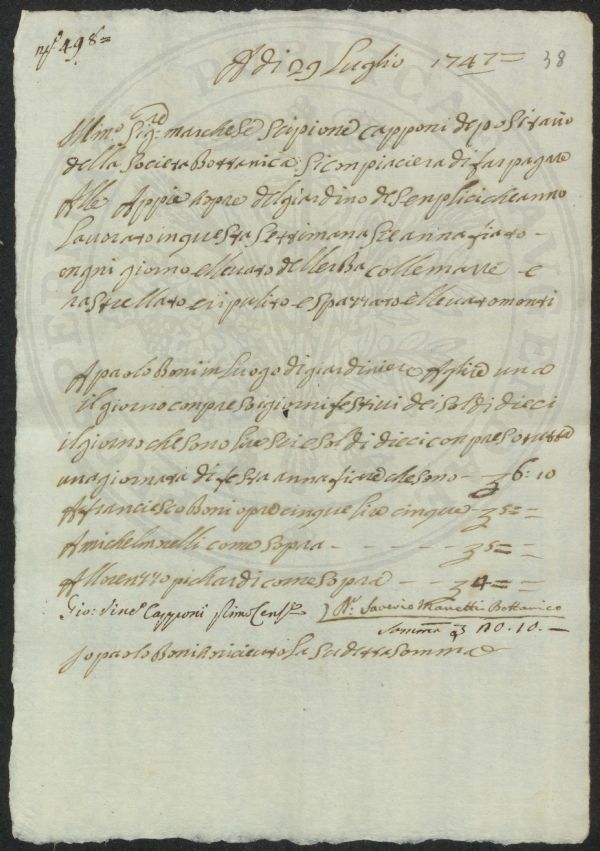 N.º 498=
A di 29 Luglio 1747=
38
Illmo Sig.re marchese Scipione Capponi depositario
della Societa Bottanica: Si conpiaciera di far pagare
Alle Appie hopre del giardino de Senplici che anno
Lavorato in questa Settimana Se anna fiato -
ongni giorno ellevato dellerba colle marre - e
rastrellato e ripulito e spazzato e llevato monti
A paolo Boni in Luogo di giardiniere A Lire una
il giorno conpreso i giorni festivi dei Soldi dieci
il giorno che sono Lire Sei e Soldi dieci conpreso tutta
una giornata di festa anna fiare che sono - 6:10
A franciesco Boni opre cinque Lire cinque - 5= =
A michel morelli come sopra - - - - - 5= =
A llorenzzo pichardi come sopra - - 4= =
Gio: Vinc.o Capponi
D.r Saverio Manetti Bottanico
Somma 20.10.—
Io paolo Boni o ricieuto La Sudetta Somma